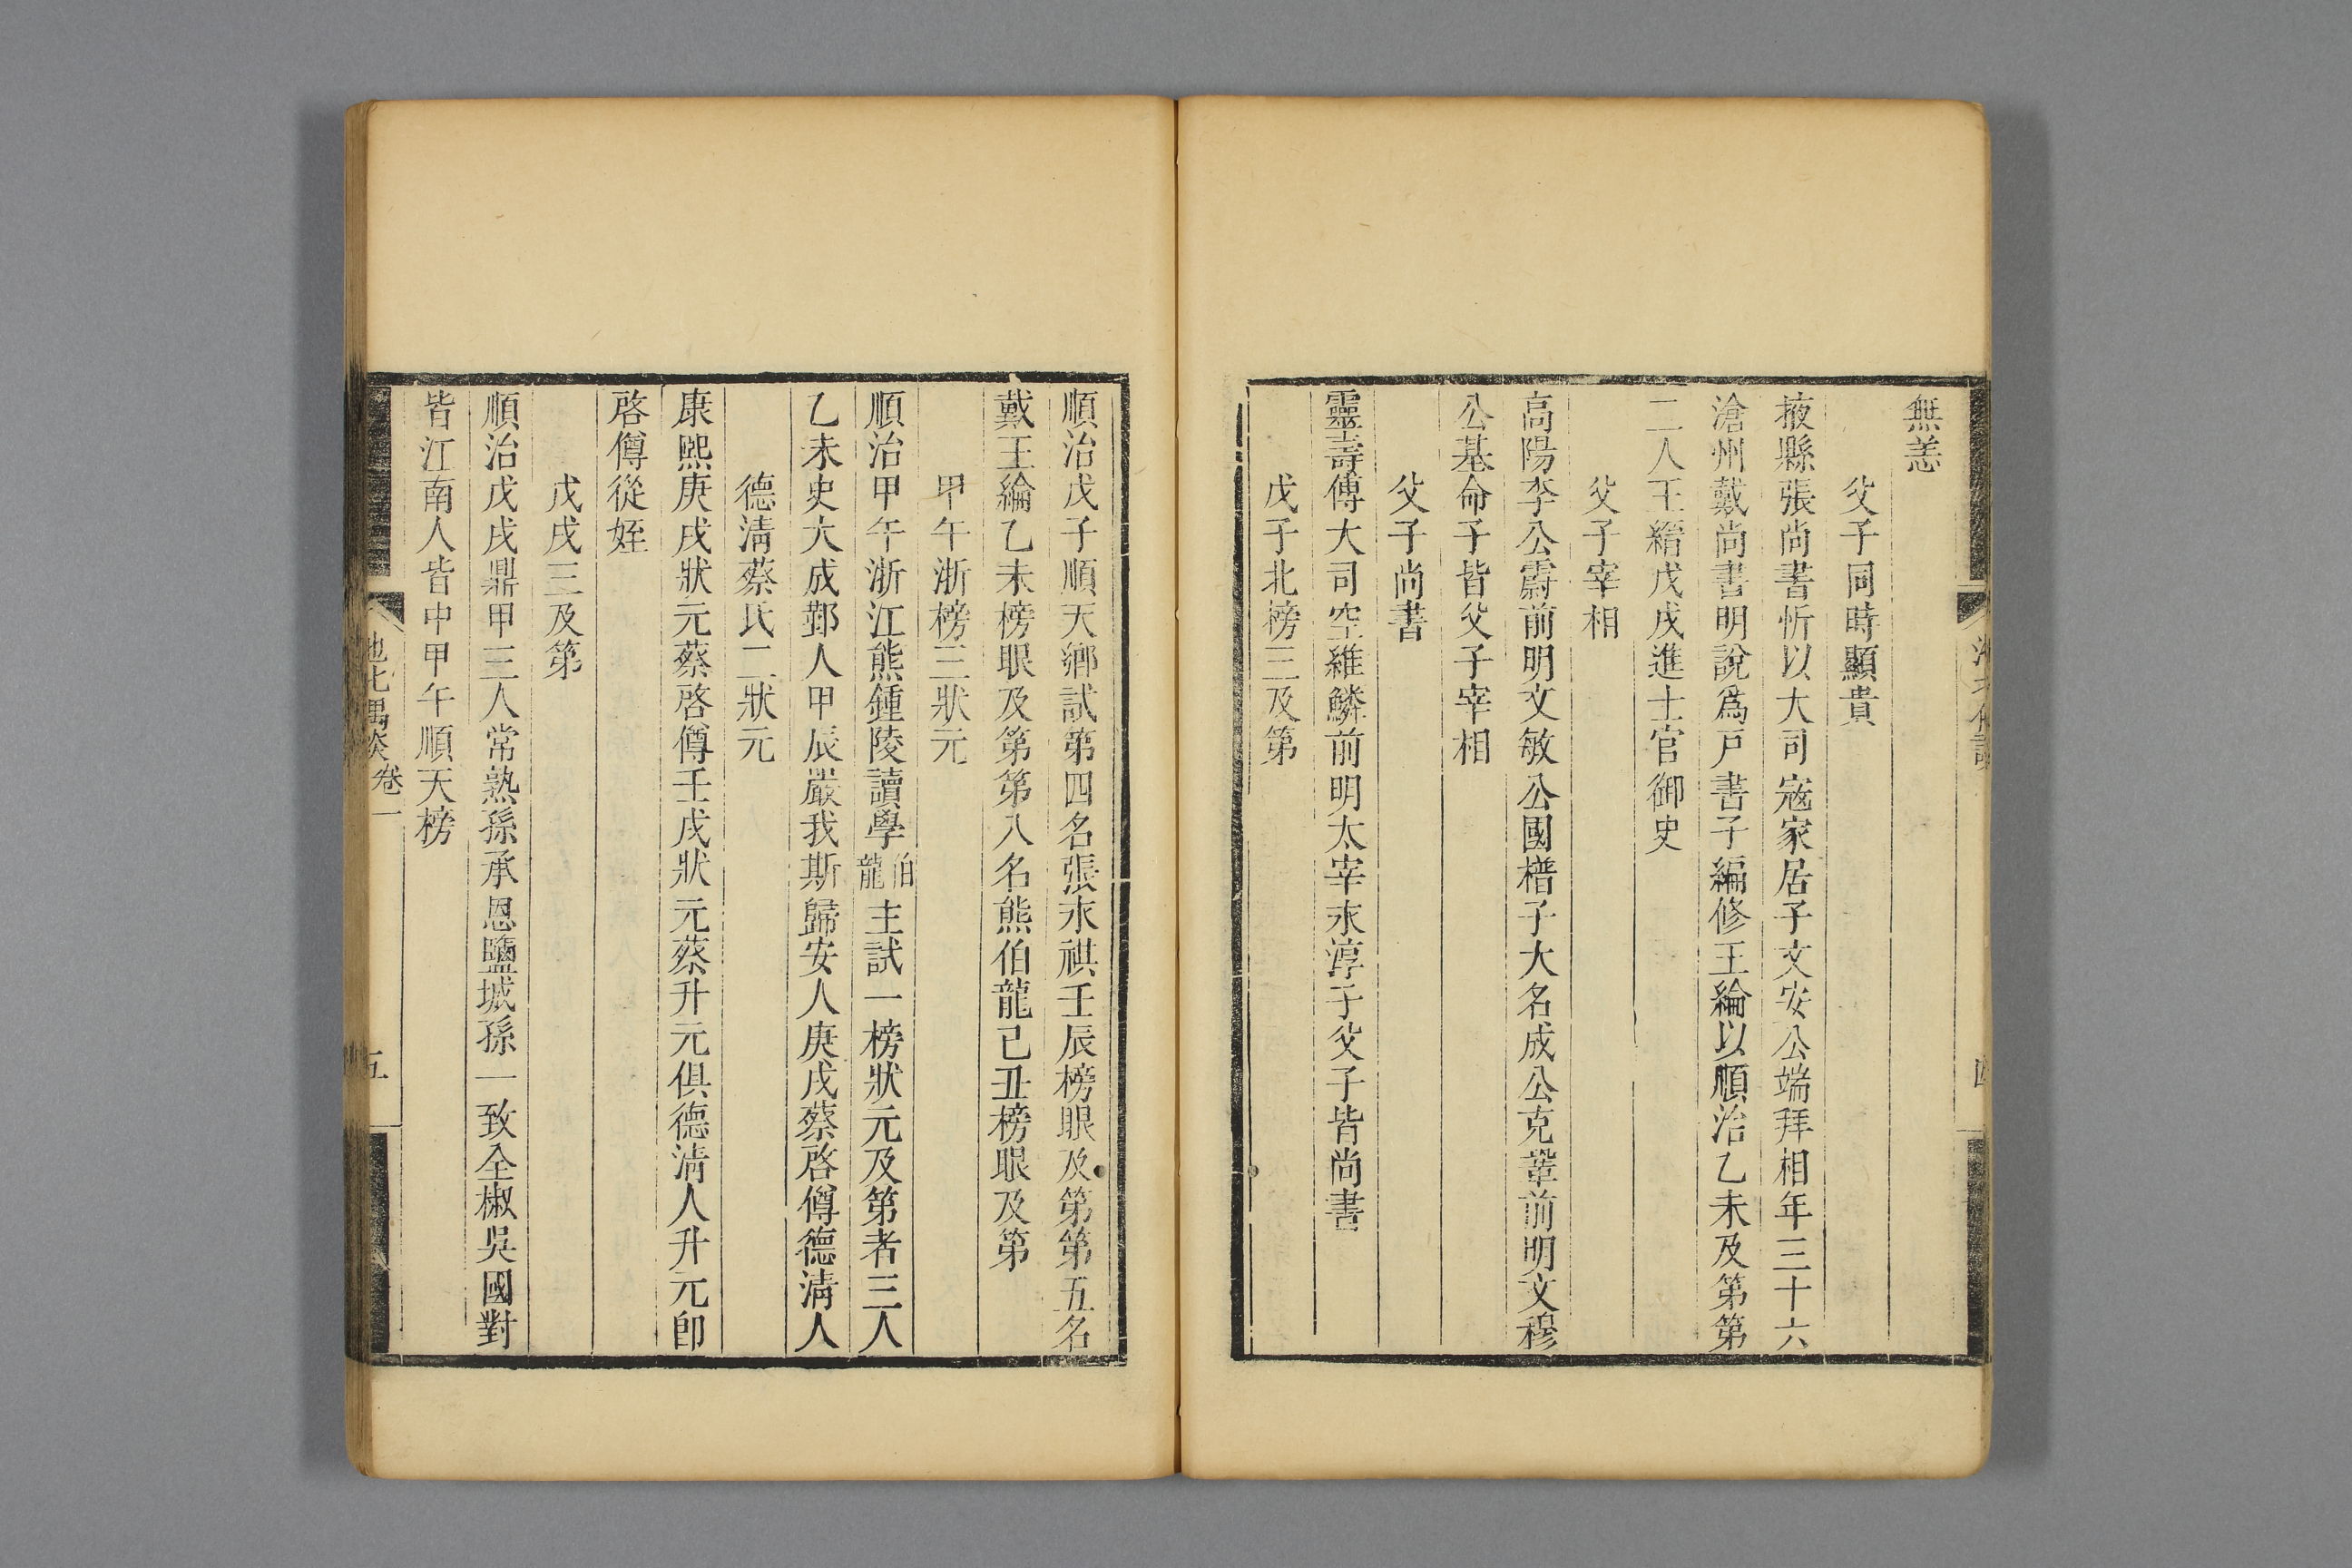 無恙
父子同時顯貴
掖縣張尚書忻以大司寇家居子文安公端拜相年三十六
滄州戴尚書明說爲戸書子編修王綸以順治乙未及第第
二人王縉戊戌進士官御史
父子宰相
高陽李公霨前明文敏公國𣚴子大名成公克鞏前明文穆
公基命子皆父子宰相
父子尚書
靈壽傅大司空維鱗前明太宰永淳子父子皆尚書
戊子北榜三及第
四
順治戊子順天鄉試第四名張永祺壬辰榜眼及第第五名
戴王綸乙未榜眼及第第八名熊伯龍己丑榜眼及第
甲午浙榜三狀元
順治甲午浙江熊鍾陵讀學伯龍主試一榜狀元及第者三人
乙未史大成鄞人甲辰嚴我斯歸安人庚戌蔡啓僔德淸人
德淸蔡氏二狀元
康熙庚戌狀元蔡啓僔壬戌狀元蔡升元俱德淸人升元卽
啓僔從姪
戊戌三及第
順治戊戌鼎甲三人常熟孫承恩鹽城孫一致全椒吳國對
皆江南人皆中甲午順天榜
池北偶談卷一
五